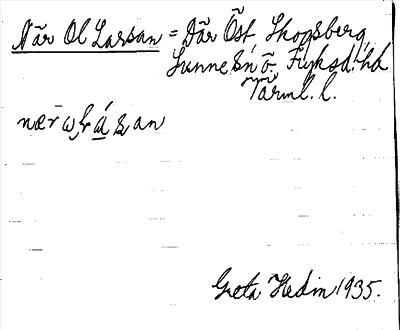 När Ol Larsan = Där Öst Skogsberg,
Sunne sn ö. Fryksd. hd
Värml. l.
nær ωlrá̲san
Greta Hedin 1935.